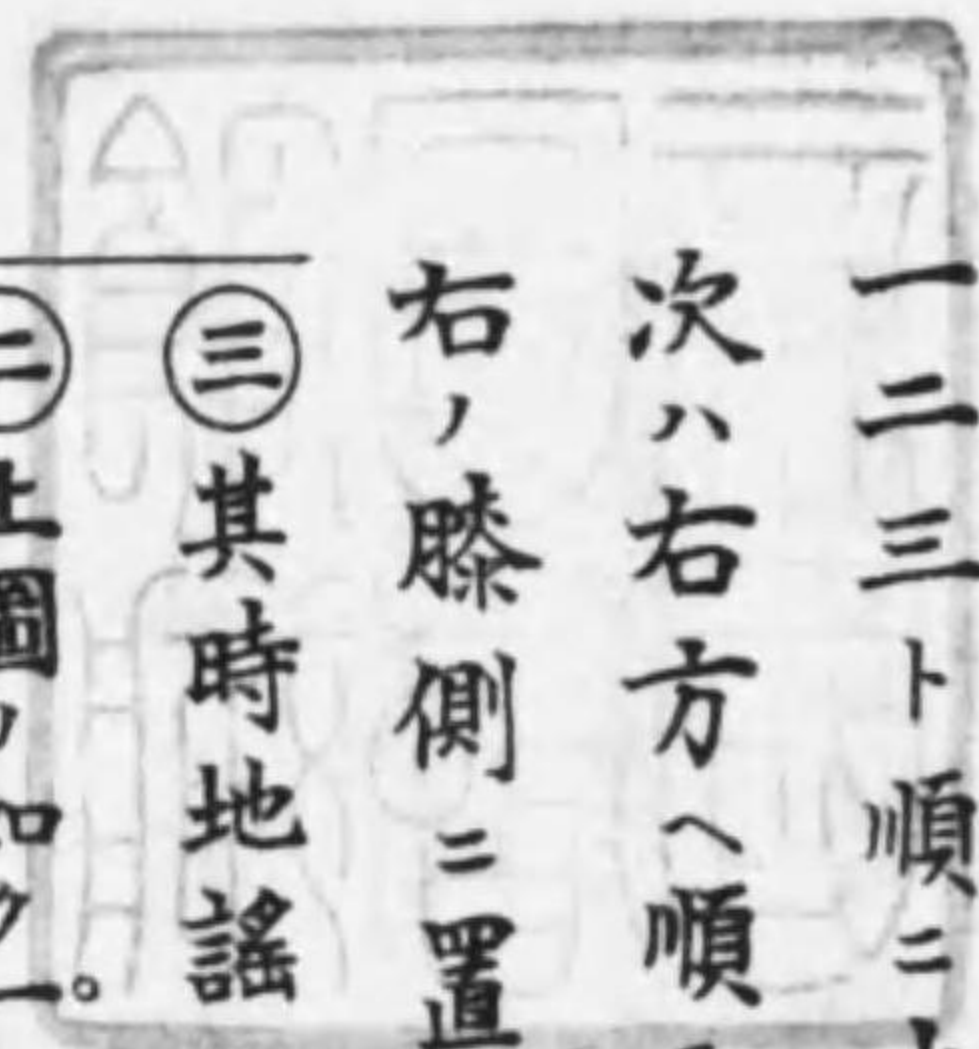 一二三ト順ニ
次ハ右方へ順
右ノ膝側ニ置
㊂其時地謠
㊁上圖ノ如ク一。